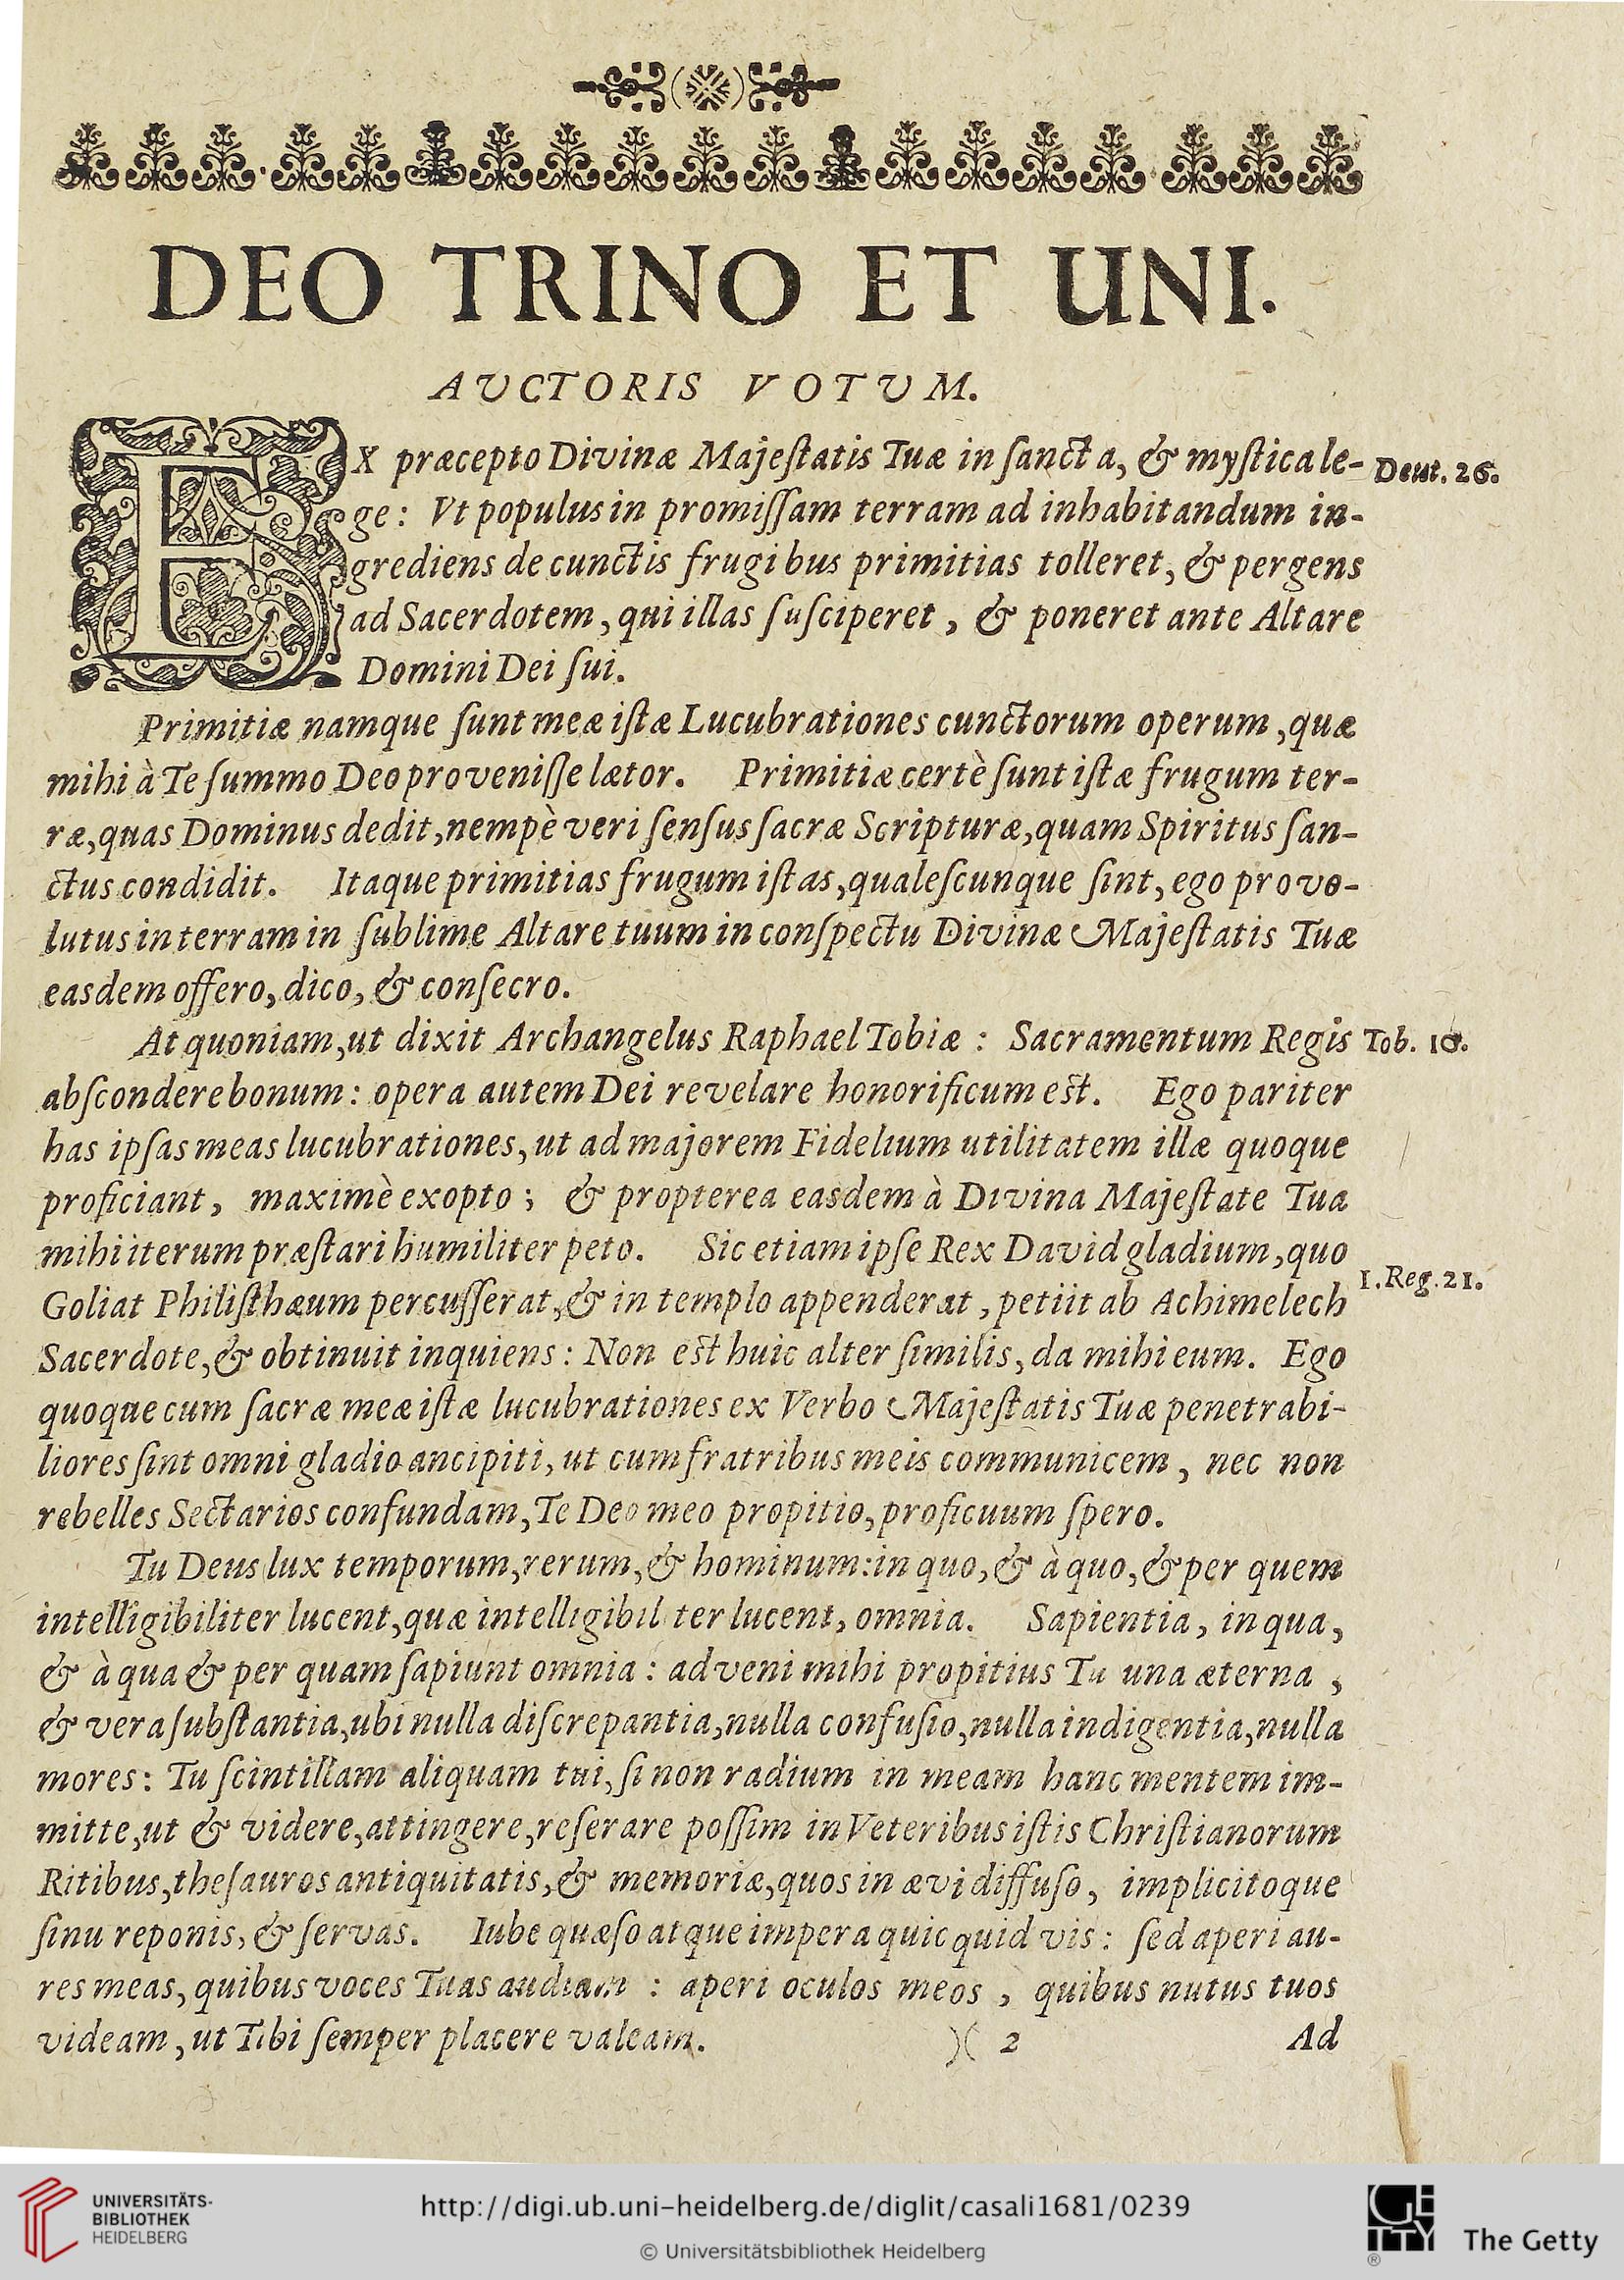 DEO TRINO ET UNI.
AVCTORIS VOTUM.
EX præcepto Divinæ Majeſtatis Tuæ in ſancta, & myſtica le- Deut. 26.
ge: Vt populus in promiſſam terram ad inhabitandum in-
grediens de cunctis frugibus primitias tolleret, & pergens
ad Sacerdotem, qui illas ſuſciperet, & poneret ante Altare
Domini Dei ſui.
Primitiæ namque ſunt meæ iſtæ Lucubrationes cunctorum operum, quæ
mihi à Te ſummo Deo proveniſſe lætor. Primitiæ certè ſunt iſtæ frugum ter-
ræ, quas Dominus dedit, nempè veri ſenſus ſacræ Scripturæ, quam Spiritus ſan-
ctus condidit. Itaque primitias frugum iſtas, qualeſcunque ſint, ego provo-
lutus in terram in ſublime Altare tuum in conſpectu Divinæ Majeſtatis Tuæ
easdem offero, dico, & conſecro.
At quoniam, ut dixit Archangelus Raphael Tobiæ: Sacramentum Regis Tob. 10.
abſcondere bonum: opera autem Dei revelare honorificum est. Ego pariter
has ipſas meas lucubrationes, ut ad majorem Fidelium utilitatem illæ quoque
proficiant, maximè exopto; & propterea easdem à Divina Majeſtate Tua
mihi iterum præſtari humiliter peto. Sic etiam ipſe Rex David gladium, quo
Goliat Philiſthæum percuſſerat, & in templo appenderat, petiit ab Achimelech 1. Reg. 21.
Sacerdote, & obtinuit inquiens: Non est huic alter ſimilis, da mihi eum. Ego
quoque cum ſacræ meæ iſtæ lucubrationes ex Verbo Majeſtatis Tuæ penetrabi-
liores ſint omni gladio ancipiti, ut cum fratribus meis communicem, nec non
rebelles Sectarios confundam, Te Deo meo propitio, proficuum ſpero.
Tu Deus lux temporum, rerum, & hominum: in quo, & à quo, & per quem
intelligibiliter lucent, quæ intelligibil ter lucent, omnia. Sapientia, in qua,
& à qua & per quam ſapiunt omnia: adveni mihi propitius Tu una æterna,
& vera ſubſtantia, ubi nulla diſcrepantia, nulla confuſio, nulla indigentia, nulla
mores: Tu ſcintillam aliquam tui, ſi non radium in meam hanc mentem im-
mitte, ut & videre, attingere, reſerare poſſim in Veteribus iſtis Chriſtianorum
Ritibus, theſauros antiquitatis, & memoriæ, quos in ævi diffuſo, implicitoque
ſinu reponis, & ſervas. Iube quæſo atque impera quicquid vis: ſed aperi au-
res meas, quibus voces Tuas audiam: aperi oculos meos, quibus nutus tuos
videam, ut Tibi ſemper placere valeam. )( 2 Ad
UNIVERSITÄTS-
BIBLIOTHEK
HEIDELBERG
http://digi.ub.uni-heidelberg.de/diglit/casali1681/0239
© Universitätsbibliothek Heidelberg
GETTY
® The Getty